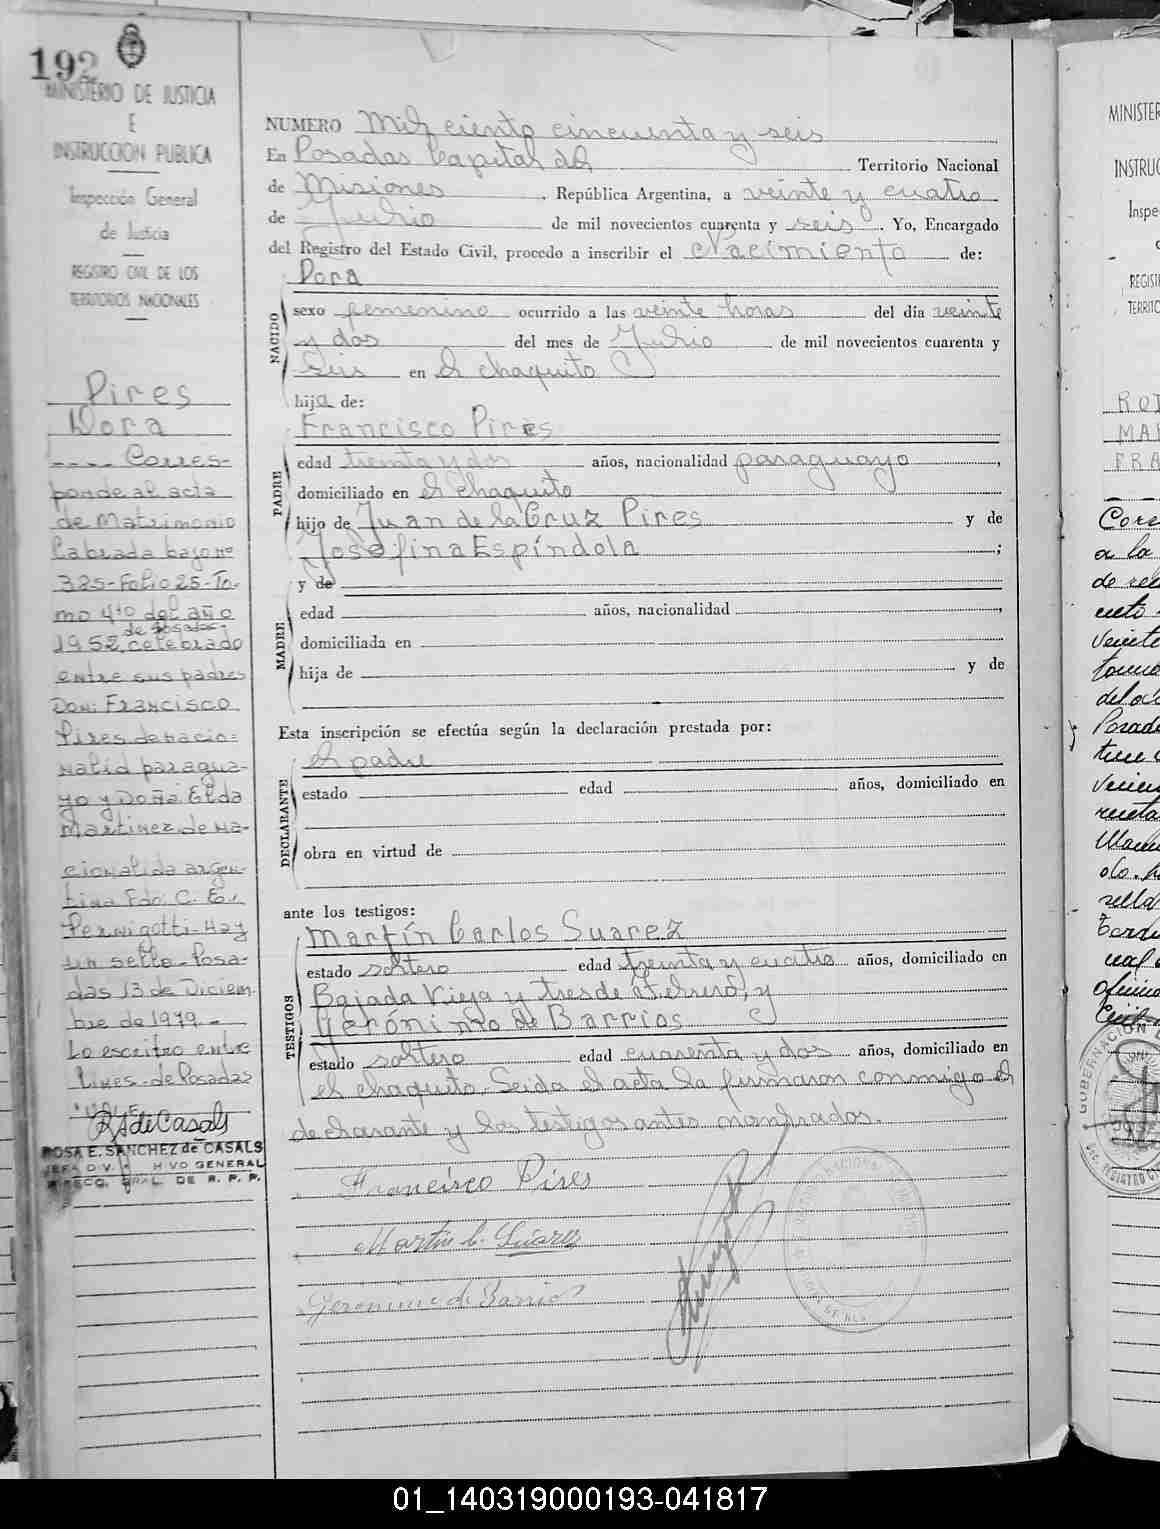 192
MINISTERIO DE JUSTICIA
E
INSTRUCCION PUBLICA
Inspección General
de Justicia
REGISTRO CIVIL DE LOS
TERRITORIOS NACIONALES
Pires
Dora
---- Corres-
ponde al acta
de Matrimonio
labrada bajo nº
325-Folio 25-To-
mo 4to del año
de Posadas-
1952, celebrado
entre sus padres
Don: Francisco
Pires de nacio=
nalid paragua-
yo y Doña Elda
Martinez de na-
cionalida argen-
tina Fdo: C. E.
Pernigotti-Hay
un sello-Posa-
das 13 de Diciem-
bre de 1979.-
Lo escrito entre
lines-de Posadas
VALE
RSdeCasals
ROSA E. SANCHEZ de CASALS
JEFA DIV. ARCHIVO GENERAL
DIRECC. GRAL. DE R. P. P.
NUMERO Mil ciento cincuenta y seis
En Posadas Capital del Territorio Nacional
de Misiones, República Argentina, a veinte y cuatro
de Julio de mil novecientos cuarenta y seis. Yo, Encargado
del Registro del Estado Civil, procedo a inscribir el Nacimiento de:
NACIDO
Dora
sexo femenino ocurrido a las veinte horas del día veinte
y dos del mes de Julio de mil novecientos cuarenta y
seis en el chaquito
hija de:
PADRE
Francisco Pires
edad treinta y dos años, nacionalidad paraguayo,
domiciliado en el chaquito
hijo de Juan de la Cruz Pires y de
Josefina Espíndola;
MADRE
y de
edad años, nacionalidad,
domiciliada en
hija de y de
Esta inscripción se efectúa según la declaración prestada por:
DECLARANTE
el padre
estado edad años, domiciliado en
obra en virtud de
ante los testigos:
TESTIGOS
Martín Carlos Suarez
estado soltero edad treinta y cuatro años, domiciliado en
Bajada Vieja y tres de Febrero, y
Gerónimo de Barrios
estado soltero edad cuarenta y dos años, domiciliado en
el chaquito. Leida el acta la firmaron conmigo el
declarante y los testigos antes nombrados.
Francisco Pires
Martin C. Suarez
Geronimo de Barrios
MINISTER
INSTRUC
Inspe
REGIST
TERRITO
ROJ
MAR
FRA
a la
de
01_140319000193-041817